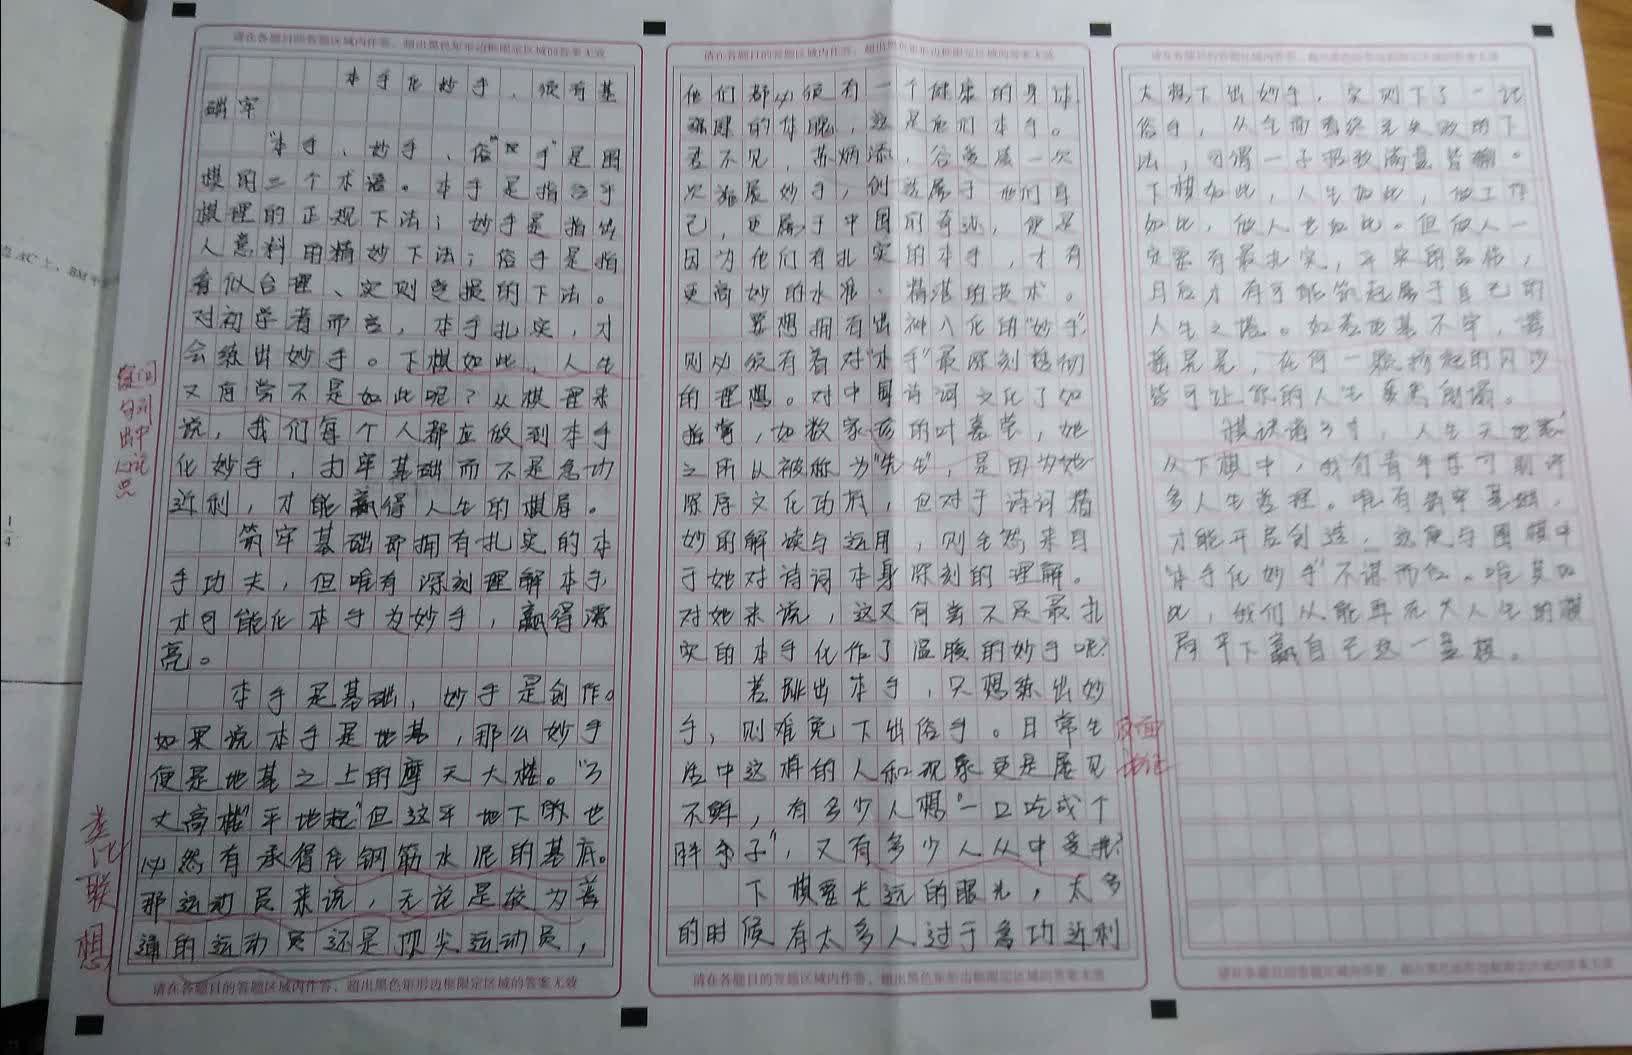 请在各题目的答题区域内作答，超出黑色矩形边框限定区域的答案无效
本手化妙手，须有基
础牢
"本手、妙手、俗手"是围
棋的三个术语。本手是指合乎
棋理的正规下法；妙手是指出
人意料的精妙下法；俗手是指
看似合理、实则受损的下法。
对初学者而言，本手扎实，才
会练出妙手。下棋如此，人生
又何尝不是如此呢？从棋理来
说，我们每个人都应做到本手
化妙手，打牢基础而不是急功
近利，才能赢得人生的棋局。
筑牢基础即拥有扎实的本
手功夫，但唯有深刻理解本手，
才可能化本手为妙手，赢得漂
亮。
本手是基础，妙手是创作。
如果说本手是地基，那么妙手
便是地基之上的摩天大楼。"万
丈高楼平地起"但这平地下的也
必然有承得住钢筋水泥的基底。
那运动员来说，无论是较为普
通的运动员还是顶尖运动员，
请在各题目的答题区域内作答，超出黑色矩形边框限定区域的答案无效
设问
句
引
出中
心论
点
类比联想
请在各题目的答题区域内作答，超出黑色矩形边框限定区域的答案无效
他们都必须有一个健康的身体
强健的体魄，这是他们本手。
君不见，苏炳添，谷爱凌一次
次施展妙手，创造属于他们自
己，更属于中国的奇迹，便是
因为他们有扎实的本手，才有
更高妙的水准、精湛的技术。
要想拥有出神入化的"妙手"，
则必须有着对"本手"最深刻透彻
的理想。对中国诗词文化了如
指掌，如数家珍的叶嘉莹，她
之所以被称为"先生"，是因为她
深厚文化功底，但对于诗词精
妙的解读与运用，则全然来自
于她对诗词本身深刻的理解。
对她来说，这又何尝不是最扎
实的本手化作了温暖的妙手呢？
若跳出本手，只想练出妙
手，则难免下出俗手。日常生
活中这样的人和现象更是屡见
不鲜，有多少人想"一口吃成个
胖余子"，又有多少人从中受挫？
下棋要长远的眼光，太多
的时候有太多人过于急功近利
请在各题目的答题区域内作答，超出黑色矩形边框限定区域的答案无效
反面
论证
请在各题目的答题区域内作答，超出黑色矩形边框限定区域的答案无效
太想下出妙手，实则下了一记
俗手，从全而看终是失败的下
法，可谓一子招致满盘皆输。
下棋如此，人生如此，做工作
如此，做人也如此。但做人一
定要有最扎实，平实的品格，
日后才有可能筑起属于自己的
人生之塔。如若地基不牢，摇
摇晃晃，任何一颗扬起的风沙
皆可让你的人生轰然倒塌。
棋诀谱方寸，人生天地宽，
从下棋中，我们青年学可到许
多人生哲理。唯有筑牢基础，
才能开启创造，这便与围棋中
"本手化妙手"不谋而合。唯其如
此，我们从能再充大人生的棋
局中下赢自己这一盘棋。
请在各题目的答题区域内作答，超出黑色矩形边框限定区域的答案无效
1
4